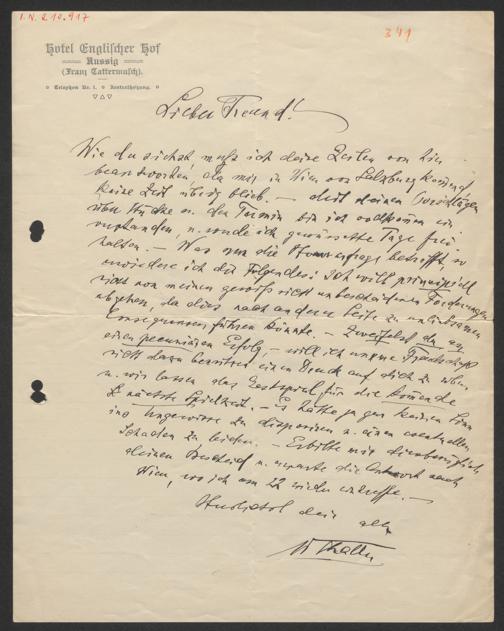 I.N. 210.917
341
Hotel Englischer Hof
Aussig
(Franz Tattermusch).
Telephon Nr. 1. Zentralheizung.
Lieber Freund!
Wie du siehst, muß ich deine Zeilen von hier
beantworten, da mir in Wien von Salzburg kommend
keine Zeit übrig blieb. — Mit deinen Vorschlägen
über Stücke u. den Termin bin ich vollkommen ein-
verstanden, u. werde ich gewünschte Tage frei
halten. — Was nun die betrifft, so
erwiedere ich dir Folgendes: Ich will principiell
nicht von meinen gewiß nicht unbescheidenen Forderungen
abgehen, da dies nach anderer Seite zu unliebsamen
Consequenzen führen könnte. — Zweifelst du an
einen pecuniären Erfolg, — will ich unsere Freundschaft
nicht dazu benützen einen Druck auf dich zu üben,
u. wir lassen das Gastspiel für die kommende
nächste Spielzeit. — Es hätte ja gar keinen Sinn
ins Ungewisse zu disponiren u. einen eventuellen
Schaden zu leiden. — Erbitte mir
deinen Bescheid u. erwarte die Antwort nach
Wien, wo ich am 22 wieder eintreffe. —
Herzlichst dein alter
W Thaller